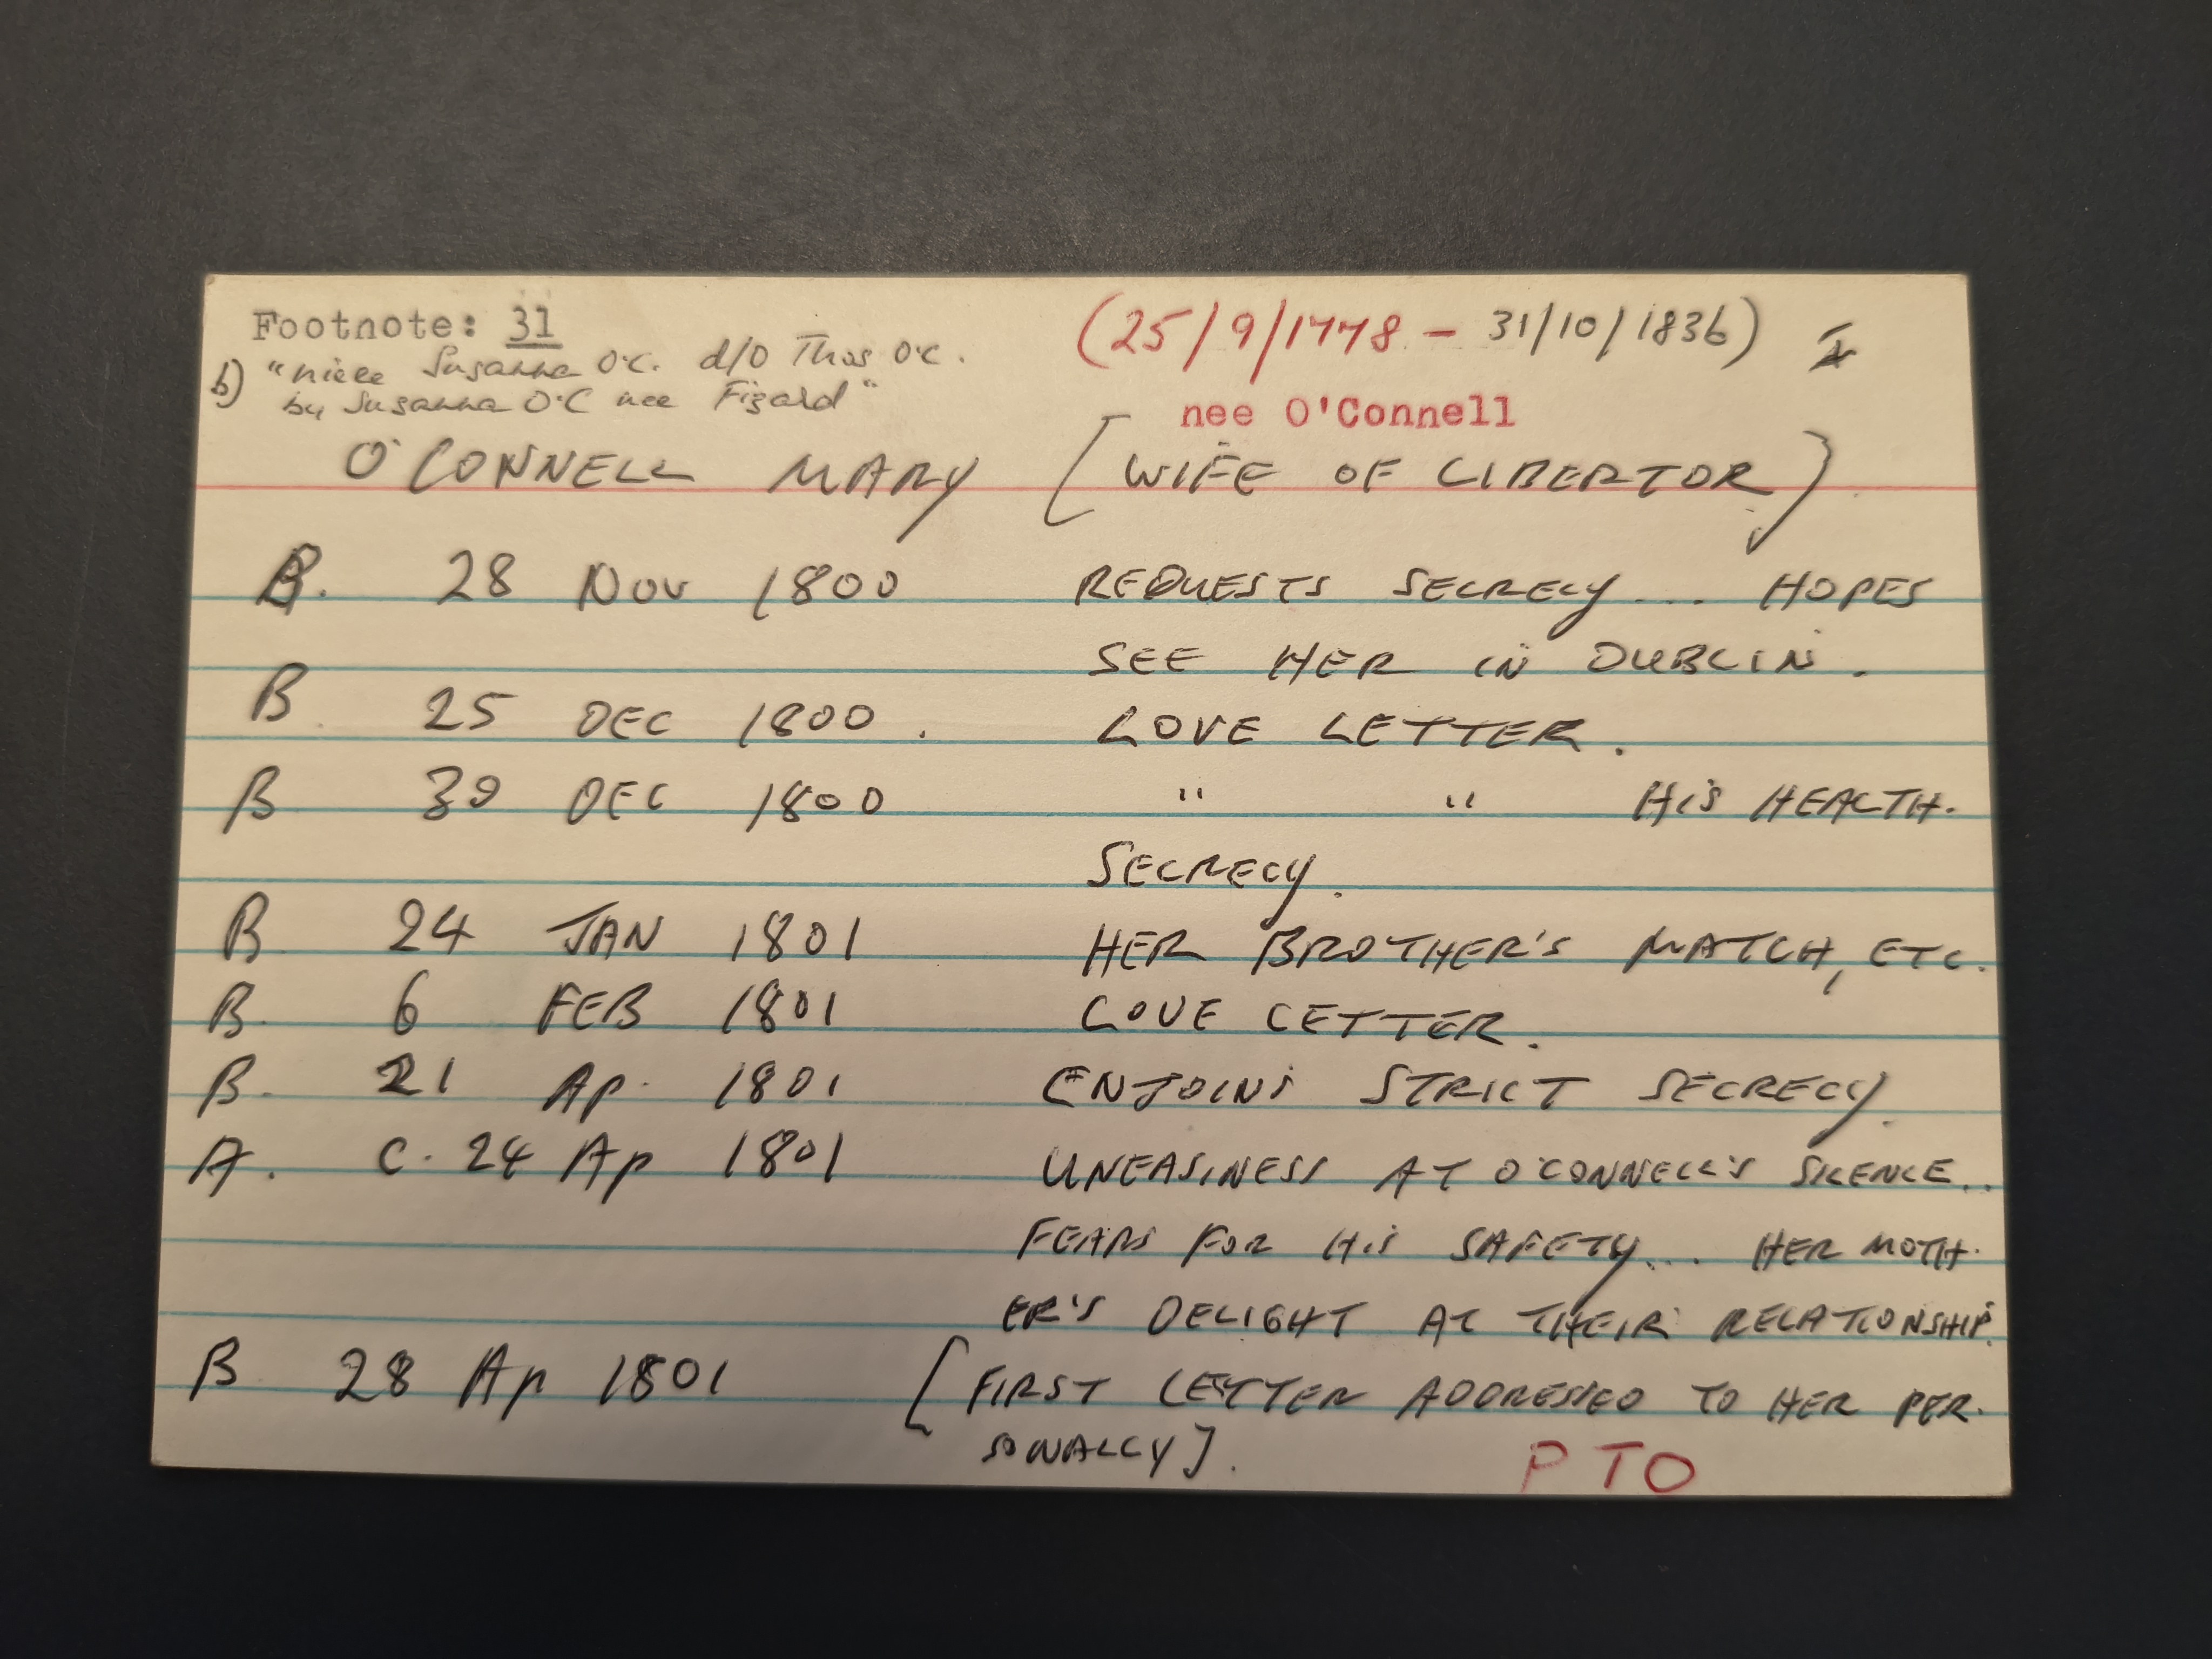 Footnote: 31
(25/9/1778 - 31/10/1836)
b) "niece Susanna O'C. d/o Thos O'C.
by Susanna O'C nee Figard"
nee O'Connell
O'CONNELL MARY [WIFE OF LIBERTOR]
B. 28 Nov 1800 REQUESTS SECRECY ... HOPES
SEE HER IN DUBLIN.
B 25 DEC 1800. LOVE LETTER.
B 30 DEC 1800 " " HIS HEALTH.
SECRECY.
B 24 JAN 1801 HER BROTHER'S MATCH, ETC.
B. 6 FEB 1801 LOVE LETTER.
B. 21 Ap. 1801 ENJOINS STRICT SECRECY.
A. C. 24 Ap 1801 UNEASINESS AT O'CONNELL'S SILENCE..
FEARS FOR HIS SAFETY... HER MOTH-
ER'S DELIGHT AT THEIR RELATIONSHIP.
B 28 Ap 1801 [FIRST LETTER ADDRESSED TO HER PER-
SONALLY].
PTO